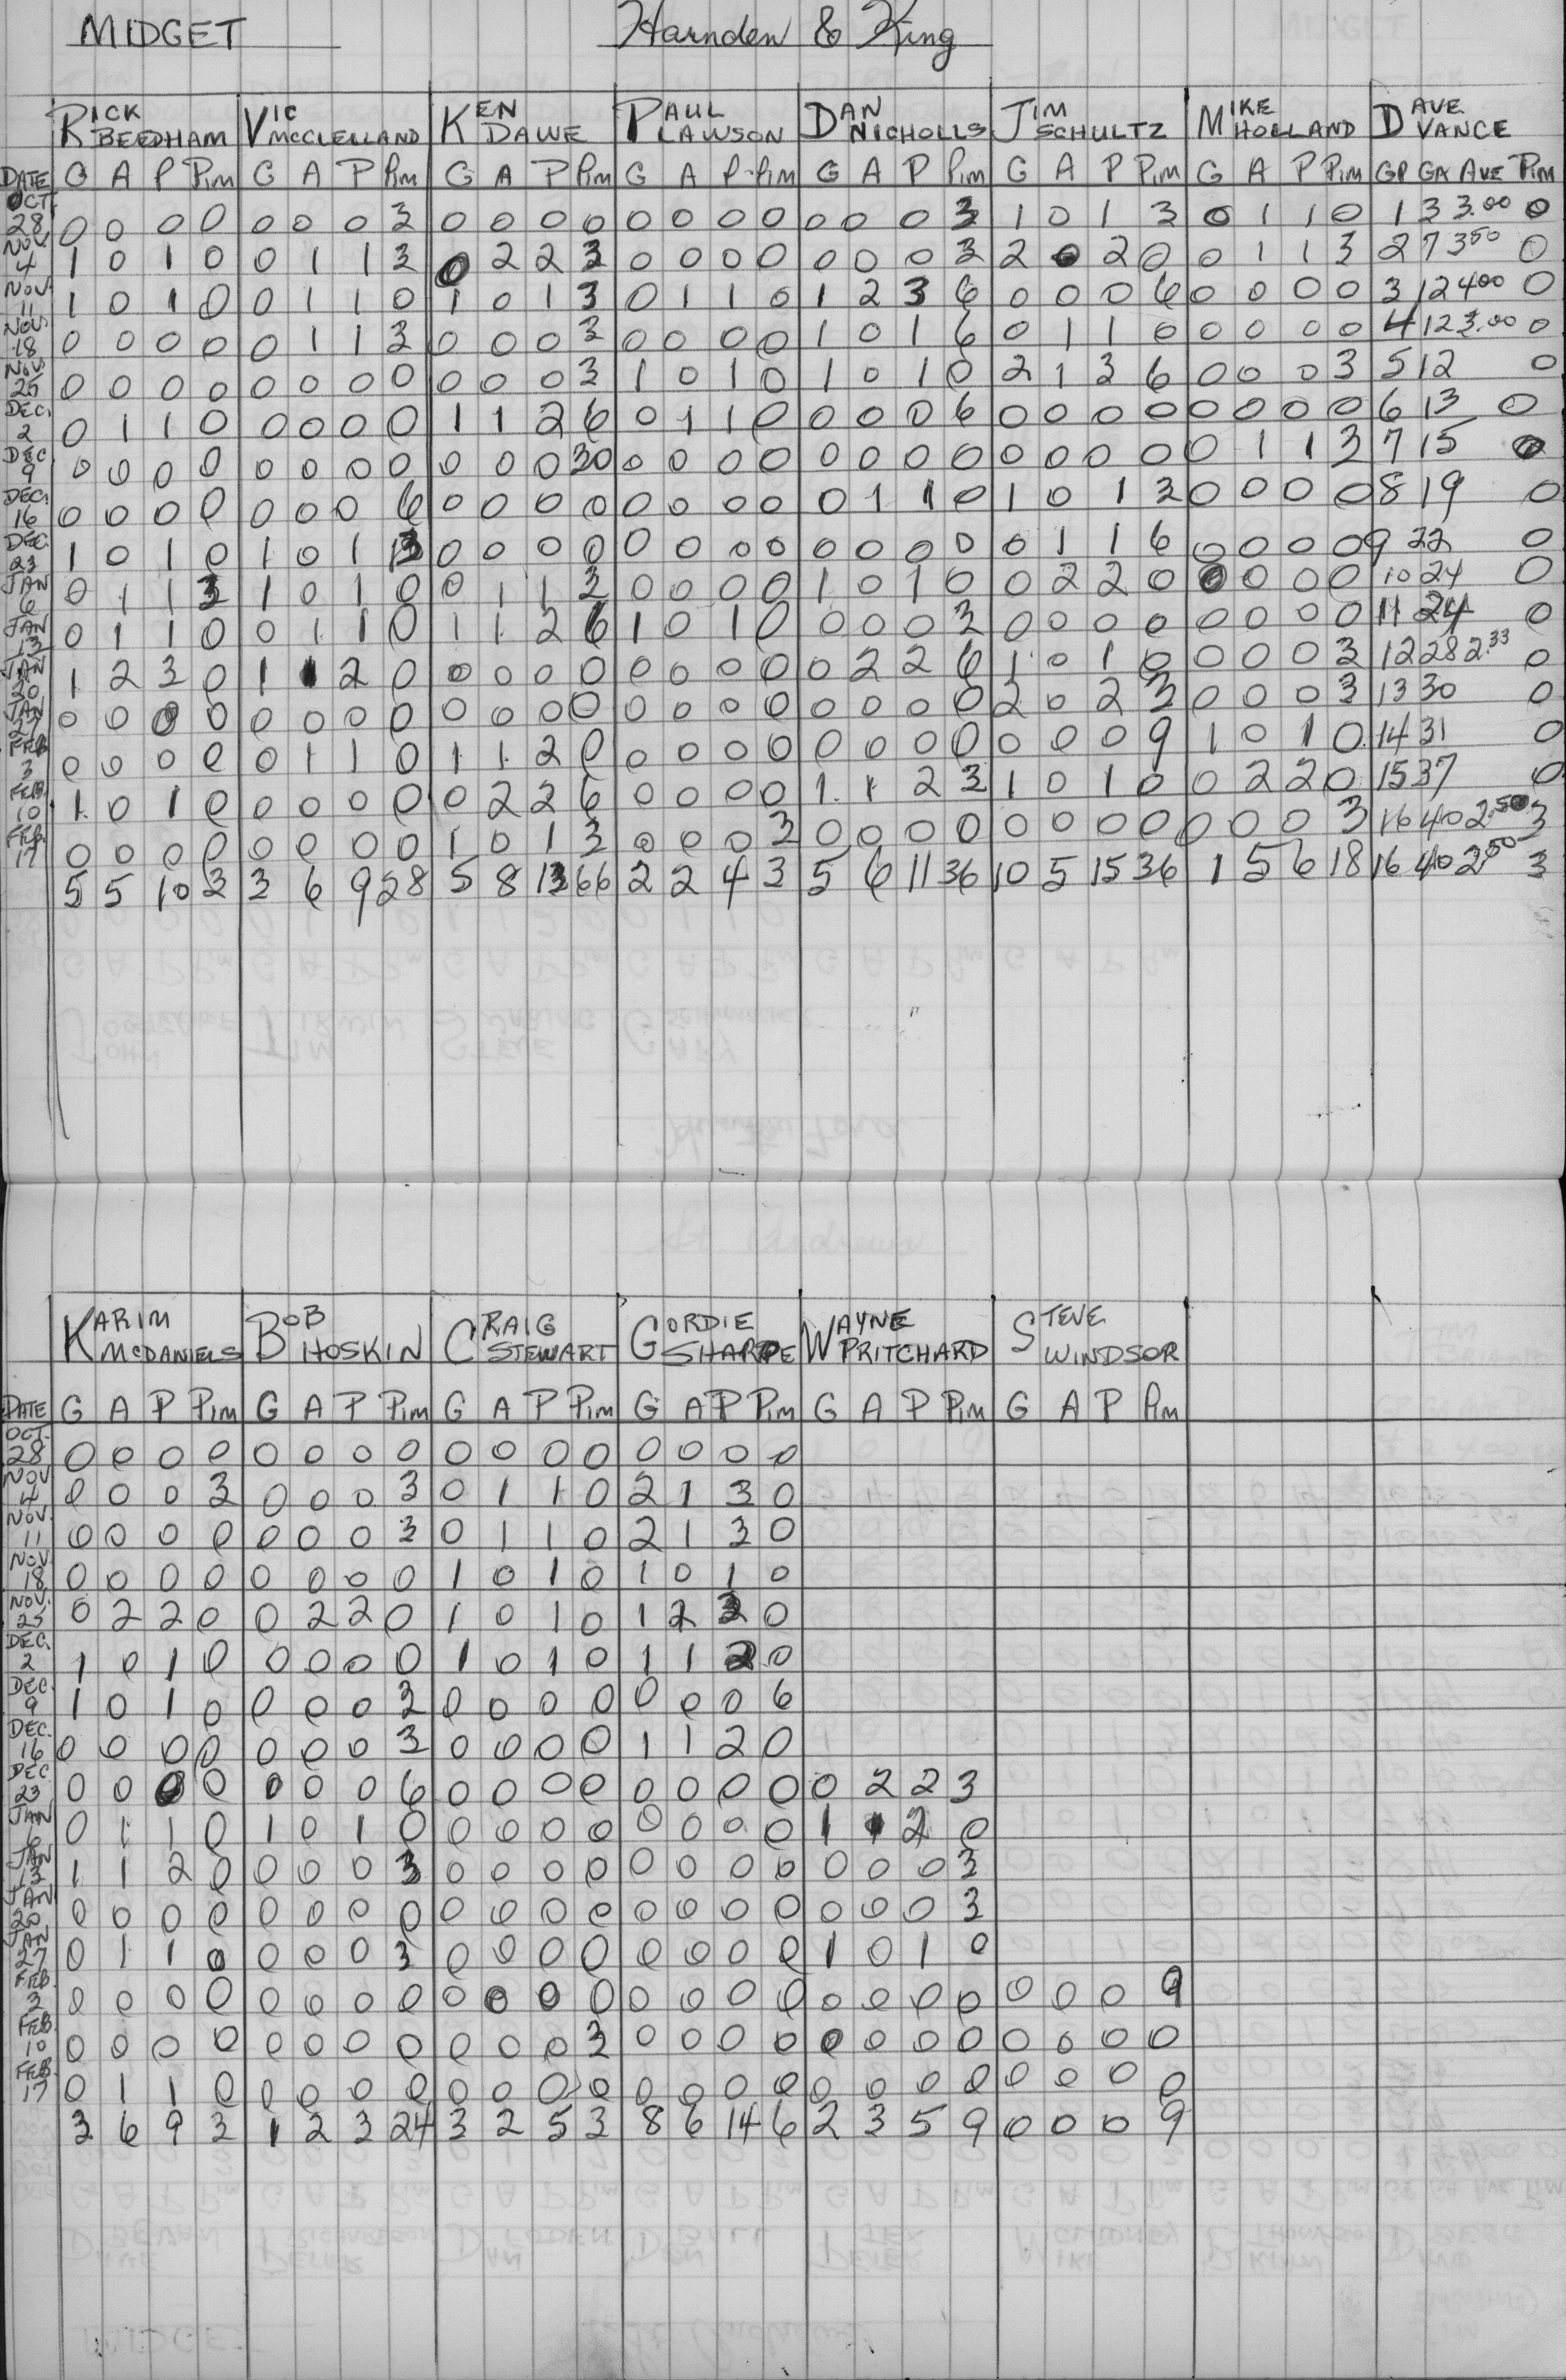 MIDGET Harnden & King
RICK BEEDHAM VIC MCCLELLAND KEN DAWE PAUL LAWSON DAN NICHOLLS JIM SCHULTZ MIKE HOLLAND DAVE VANCE
DATE G A P Pim G A P Pim G A P Pim G A P Pim G A P Pim G A P Pim G A P Pim GP GA AVE Pim
OCT 28 0 0 0 0 0 0 0 3 0 0 0 0 0 0 0 0 0 0 0 3 1 0 1 3 0 1 1 0 1 3 3.00 0
NOV. 4 1 0 1 0 0 1 1 3 0 2 2 3 0 0 0 0 0 0 0 3 2 0 2 0 0 1 1 3 2 7 3.50 0
NOV. 11 1 0 1 0 0 1 1 0 1 0 1 3 0 1 1 0 1 2 3 6 0 0 0 6 0 0 0 0 3 12 4.00 0
NOV. 18 0 0 0 0 0 1 1 3 0 0 0 3 0 0 0 0 1 0 1 6 0 1 1 0 0 0 0 0 4 12 3.00 0
NOV. 25 0 0 0 0 0 0 0 0 0 0 0 3 1 0 1 0 1 0 1 0 2 1 3 6 0 0 0 3 5 12 0
DEC. 2 0 1 1 0 0 0 0 0 1 1 2 6 0 1 1 0 0 0 0 6 0 0 0 0 0 0 0 0 6 13 0
DEC 9 0 0 0 0 0 0 0 0 0 0 0 30 0 0 0 0 0 0 0 0 0 0 0 0 0 1 1 3 7 15 0
DEC. 16 0 0 0 0 0 0 0 6 0 0 0 0 0 0 0 0 0 1 1 0 1 0 1 3 0 0 0 0 8 19 0
DEC. 23 1 0 1 0 1 0 1 13 0 0 0 0 0 0 0 0 0 0 0 0 0 1 1 6 0 0 0 0 9 22 0
JAN 6 0 1 1 3 1 0 1 0 0 1 1 3 0 0 0 0 1 0 1 0 0 2 2 0 0 0 0 0 10 24 0
JAN 13 0 1 1 0 0 1 1 0 1 1 2 6 1 0 1 0 0 0 0 3 0 0 0 0 0 0 0 0 11 24 0
JAN 20 1 2 3 0 1 1 2 0 0 0 0 0 0 0 0 0 0 2 2 6 1 0 1 0 0 0 0 3 12 28 2.33 0
JAN 27 0 0 0 0 0 0 0 0 0 0 0 0 0 0 0 0 0 0 0 0 2 0 2 3 0 0 0 3 13 30 0
FEB 3 0 0 0 0 0 1 1 0 1 1 2 0 0 0 0 0 0 0 0 0 0 0 0 9 1 0 1 0 14 31 0
FEB. 10 1 0 1 0 0 0 0 0 0 2 2 6 0 0 0 0 1 1 2 3 1 0 1 0 0 2 2 0 15 37 0
FEB. 17 0 0 0 0 0 0 0 0 1 0 1 3 0 0 0 3 0 0 0 0 0 0 0 0 0 0 0 3 16 40 2.50 3
5 5 10 3 3 6 9 28 5 8 13 66 2 2 4 3 5 6 11 36 10 5 15 36 1 5 6 18 16 40 2.50 3
KARIM MCDANIELS BOB HOSKIN CRAIG STEWART GORDIE SHARPE WAYNE PRITCHARD STEVE WINDSOR
DATE G A P Pim G A P Pim G A P Pim G A P Pim G A P Pim G A P Pim
OCT. 28 0 0 0 0 0 0 0 0 0 0 0 0 0 0 0 0
NOV 4 0 0 0 3 0 0 0 3 0 1 1 0 2 1 3 0
NOV. 11 0 0 0 0 0 0 0 3 0 1 1 0 2 1 3 0
NOV. 18 0 0 0 0 0 0 0 0 1 0 1 0 1 0 1 0
NOV. 25 0 2 2 0 0 2 2 0 1 0 1 0 1 2 3 0
DEC. 2 1 0 1 0 0 0 0 0 1 0 1 0 1 1 2 0
DEC. 9 1 0 1 0 0 0 0 3 0 0 0 0 0 0 0 6
DEC. 16 0 0 0 0 0 0 0 3 0 0 0 0 1 1 2 0
DEC 23 0 0 0 0 0 0 0 6 0 0 0 0 0 0 0 0 0 2 2 3
JAN 6 0 1 1 0 1 0 1 0 0 0 0 0 0 0 0 0 1 1 2 0
JAN 13 1 1 2 0 0 0 0 3 0 0 0 0 0 0 0 0 0 0 0 3
JAN 20 0 0 0 0 0 0 0 0 0 0 0 0 0 0 0 0 0 0 0 3
JAN 27 0 1 1 0 0 0 0 3 0 0 0 0 0 0 0 0 1 0 1 0
FEB. 3 0 0 0 0 0 0 0 0 0 0 0 0 0 0 0 0 0 0 0 0 0 0 0 9
FEB. 10 0 0 0 0 0 0 0 0 0 0 0 3 0 0 0 0 0 0 0 0 0 0 0 0
FEB. 17 0 1 1 0 0 0 0 0 0 0 0 0 0 0 0 0 0 0 0 0 0 0 0 0
3 6 9 3 1 2 3 24 3 2 5 3 8 6 14 6 2 3 5 9 0 0 0 9